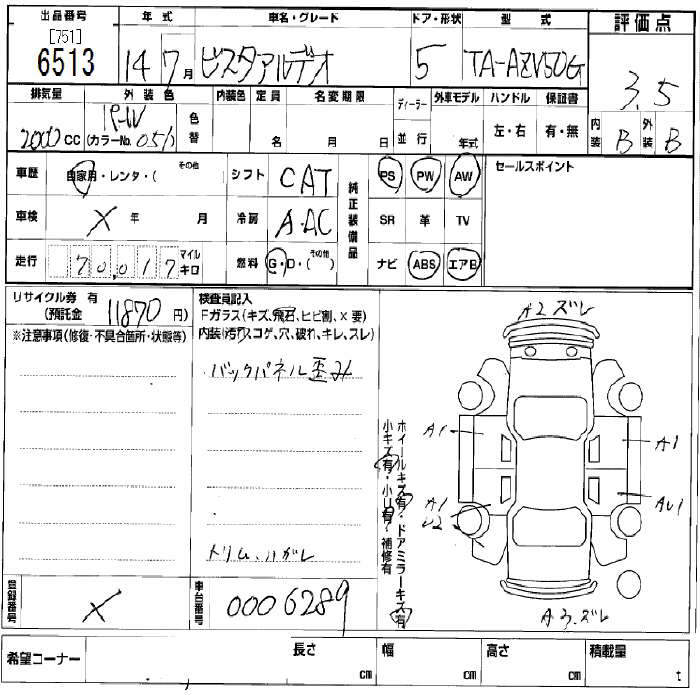 出品番号 年式 車名・グレード ドア・形状 型式 評価点
[751]
6513 14 7月 ビスタアルデオ 5 TA-AZV50G 3.5
排気量 外装色 内装色 定員 名変期限 ディーラー 外車モデル ハンドル 保証書
2000cc P-W (カラーNo. 051) 色替 名 月 日 並行 年式 左・右 有・無 内装 B 外装 B
車歴 自家用・レンタ・( その他 シフト CAT 純正装備品 PS PW AW セールスポイント
車検 X 年 月 冷房 A.AC SR 革 TV
走行 70,017 マイル キロ 燃料 G・D・(その他) ナビ ABS エアB
リサイクル券 有 (預託金 11870 円) 検査員記入
Fガラス(キズ、飛石、ヒビ割、X要)
※注意事項(修復・不具合箇所・状態等) 内装(汚れ、コゲ、穴、破れ、キレ、スレ)
A2 ズレ
バックパネル歪み
ホイールキズ有・ドアミラーキズ有
小キズ有・小U有・補修有
A1 A1
A1 AU1
U2
トリム、ハガレ
A3.ズレ
登録番号 X 車台番号 0006289
希望コーナー 長さ cm 幅 cm 高さ cm 積載量 t